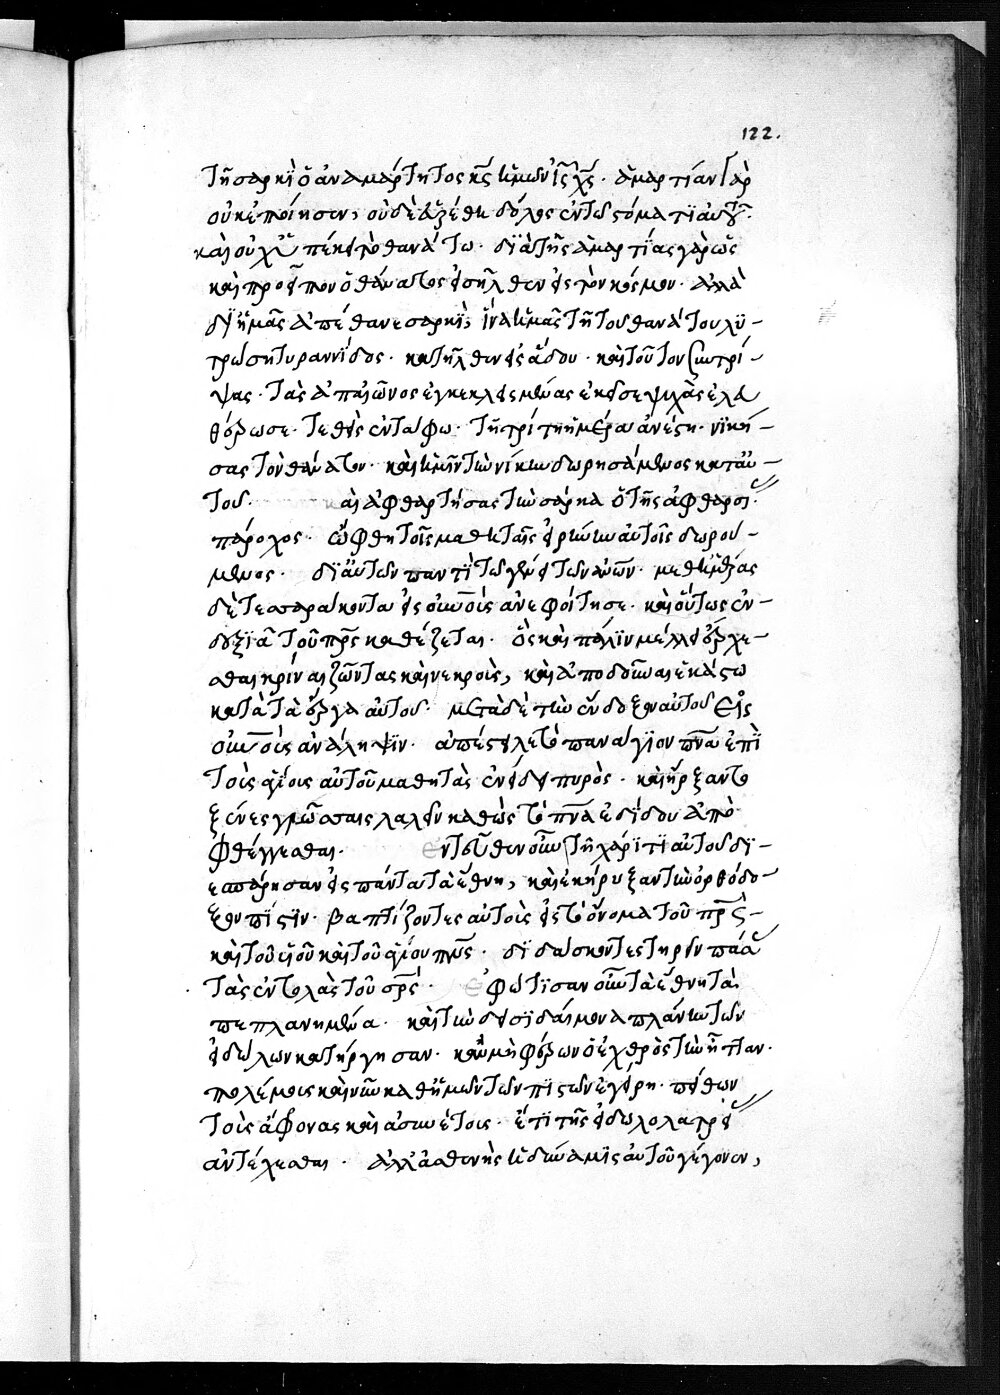 122.
τῆ σαρκὶ ὁ ἀναμάρτητος κ̅ς ἡμῶν ι̅ς χ̅ς. ἁμαρτίαν γὰρ
οὐκ ἐποίησεν, οὐδὲ εὑρέθη δόλος ἐν τῶ στόματι αὐτοῦ.
καὶ οὐχ ὑπέκειτο θανάτω. διὰ τῆς ἁμαρτίας γὰρ ὡς
καὶ προεῖπον ὁ θάνατος εἰσῆλθεν εἰς τὸν κόσμον. ἀλλὰ
δι' ἡμᾶς ἀπέθανε σαρκὶ, ἵνα ἡμᾶς τῆς τοῦ θανάτου λυ-
τρώση τυραννίδος. κατῆλθεν εἰς ἅδου. καὶ τοῦτον συντρί-
ψας. τὰς ἀπ' αἰῶνος ἐγκεκλεισμένας ἐκεῖσε ψυχὰς ἐλευ
θέρωσε. τεθεὶς ἐν τάφω. τῆ τρίτη ἡμέρα ἀνέστη. νική-
σας τὸν θάνατον. καὶ ἡμῖν τὴν νίκην δωρησάμενος κατ' αὐ-
τοῦ. καὶ ἀφθαρτήσας τὴν σάρκα ὁ τῆς ἀφθαρσί
πάροχος. ὤφθη τοῖς μαθηταῖς εἰρήνην αὐτοῖς δωρού-
μενος. δι' αὐτῶν παντὶ τῶ γένει τῶν ἀν̅ων. μεθ' ἡμέρας
δὲ τεσσαράκοντα εἰς οὐ̅νοὺς ἀνεφοίτησε. καὶ οὕτως ἐν
δεξιᾶ τοῦ π̅ρς καθέζεται. ὃς καὶ πάλιν μέλλει ἔρχε-
σθαι κρίναι ζῶντας καὶ νεκροὺς, καὶ ἀποδοῦναι ἑκάστω
κατὰ τὰ ἔργα αὐτοῦ. μετὰ δὲ τὴν ἔνδοξον αὐτοῦ εἰς
οὐ̅νοὺς ἀνάληψιν. ἀπέστειλε τὸ πανάγιον πν̅α ἐπὶ
τοὺς ἁγίους αὐτοῦ μαθητὰς ἐν εἴδει πυρὸς. καὶ ἤρξαντο
ξέναις γλώσσαις λαλεῖν καθὼς τὸ πν̅α ἐδίδου ἀπο
φθέγγεσθαι. ἐντεῦθεν οὖν τῆ χάριτι αὐτοῦ δι-
εσπάρησαν εἰς πάντα τὰ ἔθνη, καὶ ἐκήρυξαν τὴν ὀρθόδο-
ξον πίστιν. βαπτίζοντες αὐτοὺς εἰς τὸ ὄνομα τοῦ π̅ρς
καὶ τοῦ υἱοῦ καὶ τοῦ ἁγίου πν̅ς. διδάσκοντες τηρεῖν πάσας
τὰς ἐντολὰς τοῦ σ̅ρς. ἐφώτισαν οὖν τὰ ἔθνη τὰ
πεπλανημένα. καὶ τὴν δεισιδαίμονα πλάνην τῶν
εἰδώλων κατήργησαν. κἂν μὴ φέρων ὁ ἐχθρὸς τὴν ἧτταν.
πολέμους καὶ νῦν καθ' ἡμῶν τῶν πιστῶν ἐγείρη. πείθων
τοὺς ἄφρονας καὶ ἀσυνέτους. ἔτι τῆς εἰδωλολατρεί
ἀντέχεσθαι. ἀλλ' ἀσθενὴς ἡ δύναμις αὐτοῦ γέγονεν,